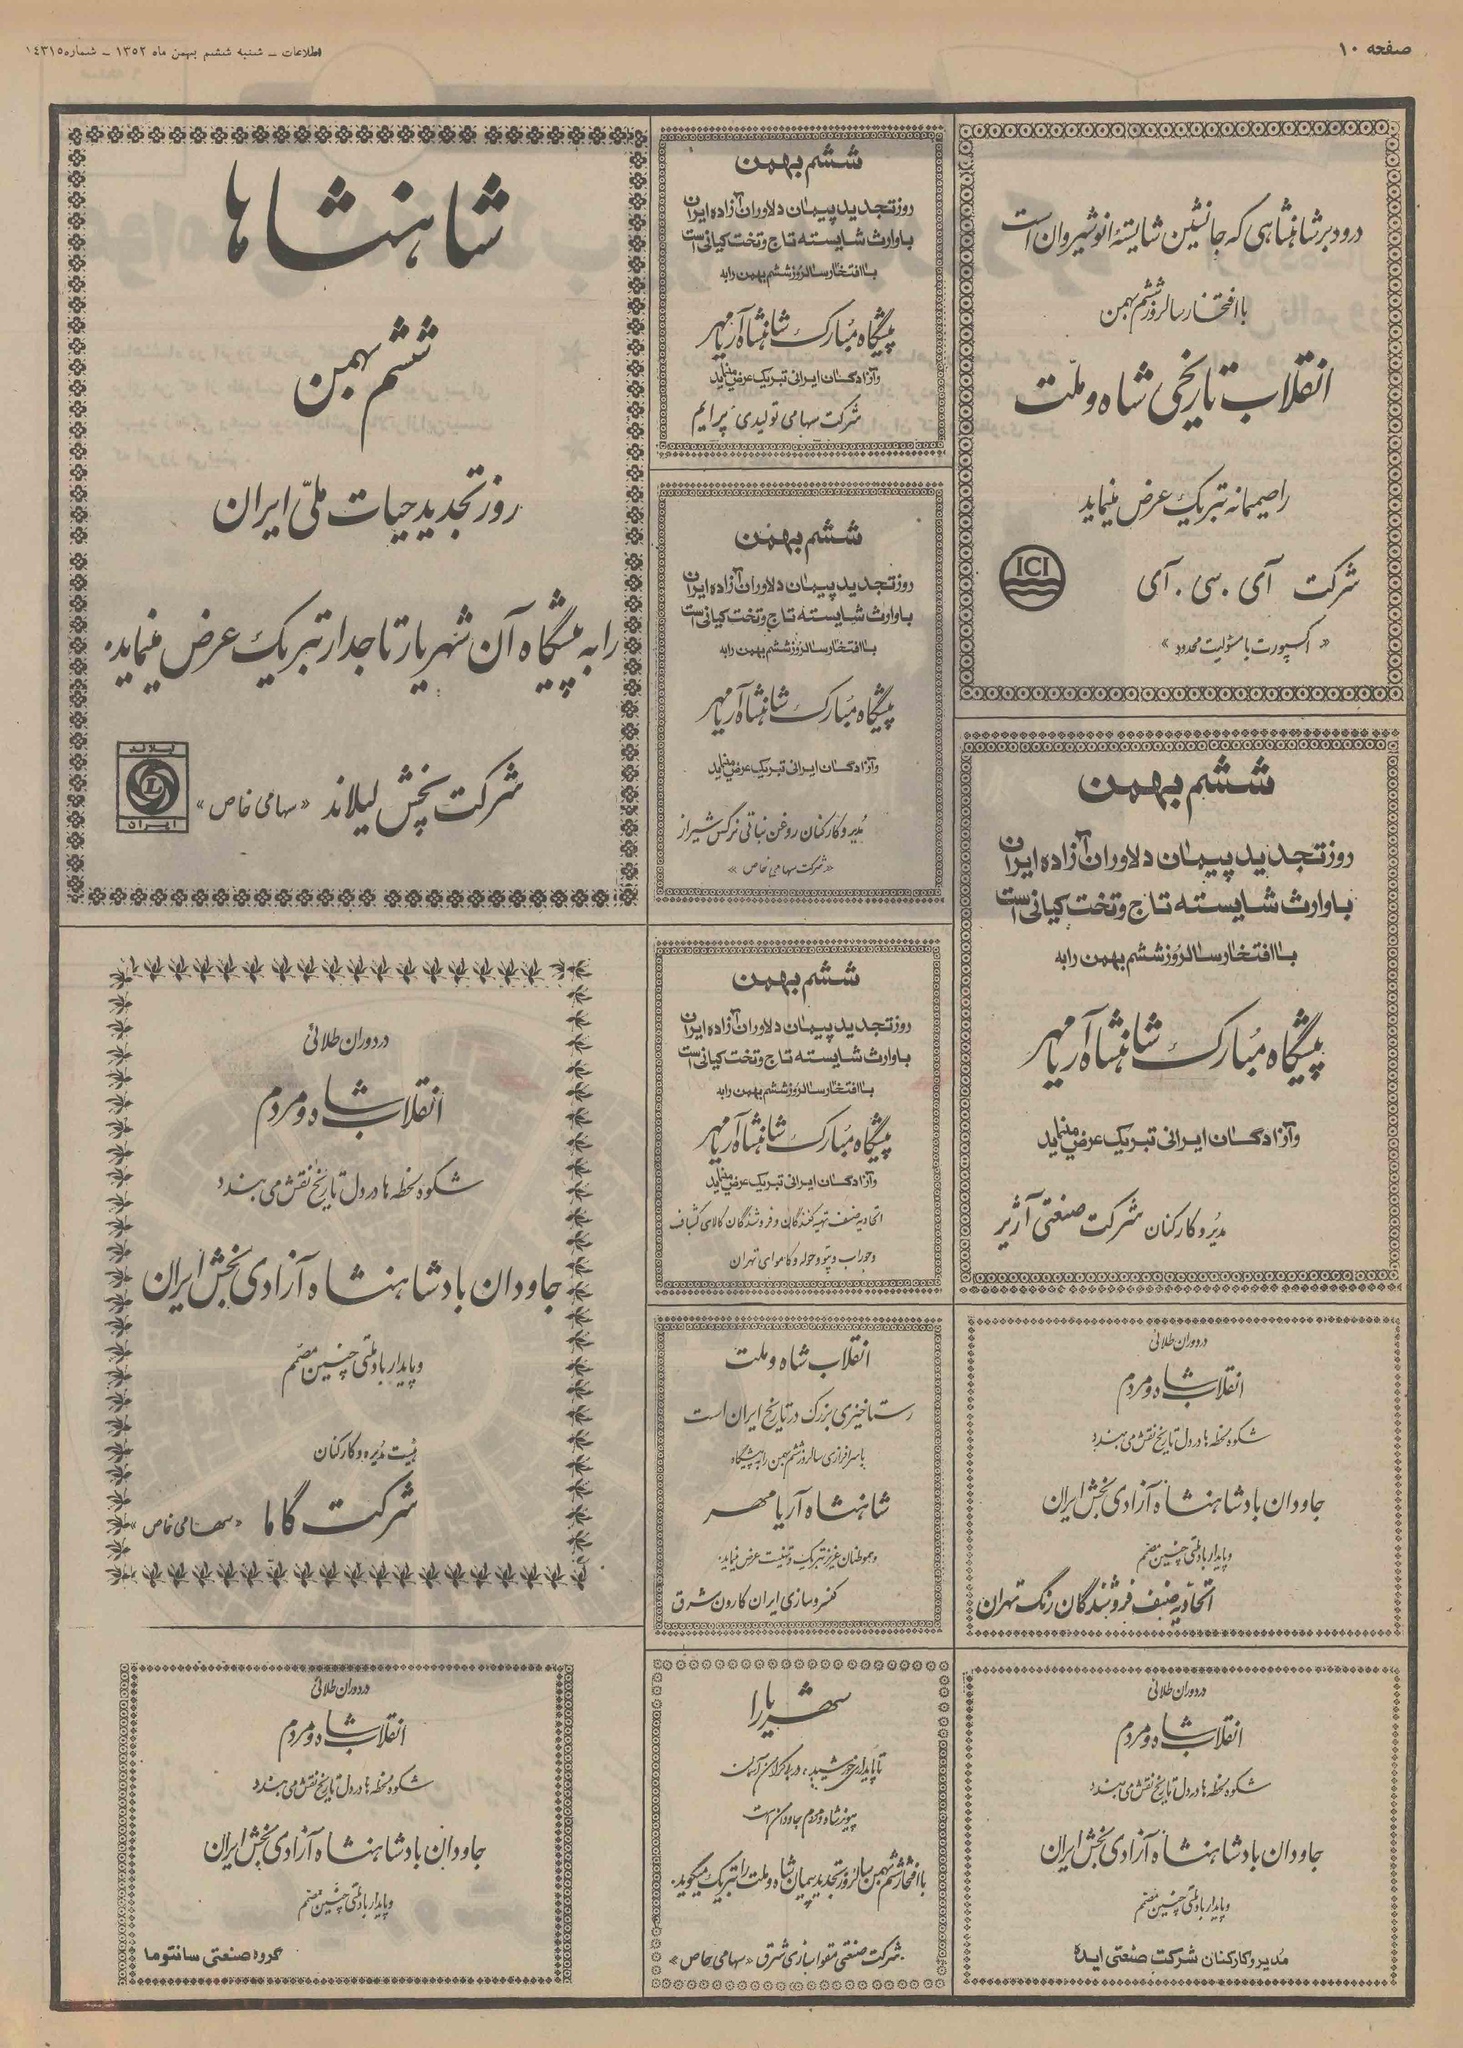 صفحه ۱۰
اطلاعات ـ شنبه ششم بهمن ماه ۱۳۵۲ ـ شماره ۱٤۳۱٥
درود بر شاهنشاهی که جانشین شایستهٔ انوشیروان است
با افتخار سالروز ششم بهمن
انقلاب تاریخی شاه و ملت
را صمیمانه تبریک عرض مینماید
شرکت آی . سی . آی
ICI
« اکسپورت با مسئولیت محدود »
ششم بهمن
روز تجدید پیمان دلاوران آزاده ایران
با وارث شایسته تاج و تخت کیانی است
با افتخار سالروز ششم بهمن را به
پیشگاه مبارک شاهنشاه آریامهر
و آزادگان ایرانی تبریک عرض مینماید
مدیر و کارکنان شرکت صنعتی آژیر
در دوران طلائی
انقلاب شاه و مردم
شکوه لحظه ها در دل تاریخ نقش می بندد
جاودان باد شاهنشاه آزادی بخش ایران
و پایدار باد ملتی چنین مصمم
اتحادیه صنف فروشندگان رنگ تهران
در دوران طلائی
انقلاب شاه و مردم
شکوه لحظه ها در دل تاریخ نقش می بندد
جاودان باد شاهنشاه آزادی بخش ایران
و پایدار باد ملتی چنین مصمم
مدیر و کارکنان شرکت صنعتی ایده
ششم بهمن
روز تجدید پیمان دلاوران آزاده ایران
با وارث شایسته تاج و تخت کیانی است
با افتخار سالروز ششم بهمن را به
پیشگاه مبارک شاهنشاه آریامهر
و آزادگان ایرانی تبریک عرض مینماید
شرکت سهامی تولیدی پرایم
ششم بهمن
روز تجدید پیمان دلاوران آزاده ایران
با وارث شایسته تاج و تخت کیانی است
با افتخار سالروز ششم بهمن را به
پیشگاه مبارک شاهنشاه آریامهر
و آزادگان ایرانی تبریک عرض مینماید
مدیر و کارکنان روغن نباتی نرگس شیراز
« شرکت سهامی خاص »
ششم بهمن
روز تجدید پیمان دلاوران آزاده ایران
با وارث شایسته تاج و تخت کیانی است
با افتخار سالروز ششم بهمن را به
پیشگاه مبارک شاهنشاه آریامهر
و آزادگان ایرانی تبریک عرض مینماید
اتحادیه صنف تهیه کنندگان و فروشندگان کالای کشباف
و جوراب و پتو و حوله و کاموای تهران
انقلاب شاه و ملت
رستاخیزی بزرگ در تاریخ ایران است
با سرافرازی سالروز ششم بهمن را به پیشگاه
شاهنشاه آریامهر
و هموطنان عزیز تبریک و تهنیت عرض مینماید.
کنسروسازی ایران کارون شرق
شهریارا
تا پایداری خورشید، در بیکران آسمان
پیوند شاه و مردم جاودان است
با افتخار ششم بهمن سالروز تجدید پیمان شاه و ملت را تبریک میگوید.
شرکت صنعتی مقواسازی شرق « سهامی خاص »
شاهنشاها
ششم بهمن
روز تجدید حیات ملّی ایران
را به پیشگاه آن شهریار تاجدار تبریک عرض مینماید.
شرکت پخش لیلاند « سهامی خاص »
لیلاند
L
ایران
در دوران طلائی
انقلاب شاه و مردم
شکوه لحظه ها در دل تاریخ نقش می بندد
جاودان باد شاهنشاه آزادی بخش ایران
و پایدار باد ملتی چنین مصمم
هیئت مدیره و کارکنان
شرکت گاما « سهامی خاص »
در دوران طلائی
انقلاب شاه و مردم
شکوه لحظه ها در دل تاریخ نقش می بندد
جاودان باد شاهنشاه آزادی بخش ایران
و پایدار باد ملتی چنین مصمم
گروه صنعتی سانتوما